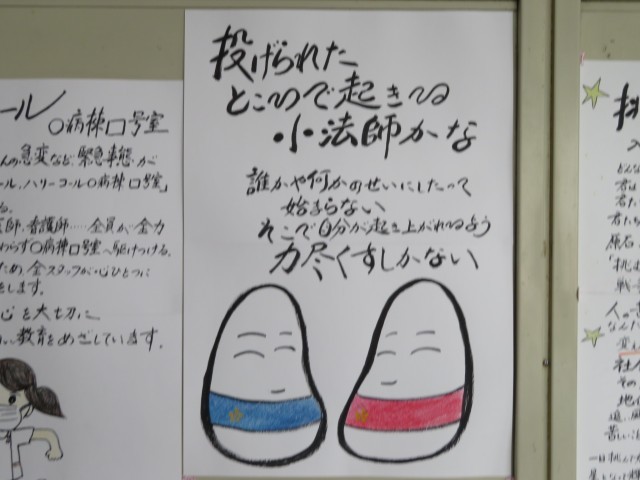 投げられた
ところで起きてる
小法師かな
誰かや何かのせいにしたって
始まらない
そこで自分が起き上がれるよう
力尽くすしかない
ール
○病棟□号室
んの急変など、緊急事態が
ール、ハリーコール○病棟□号室」
る。
医師、看護師……全員が全力
わらず○病棟□号室へ駆けつける。
ため、全スタッフが心ひとつに
をします。
心を大切に
い教育をめざしています。
どんな
君は
君た
君たち
原石
「挑む
戦
人の
なんだ
社
その
地